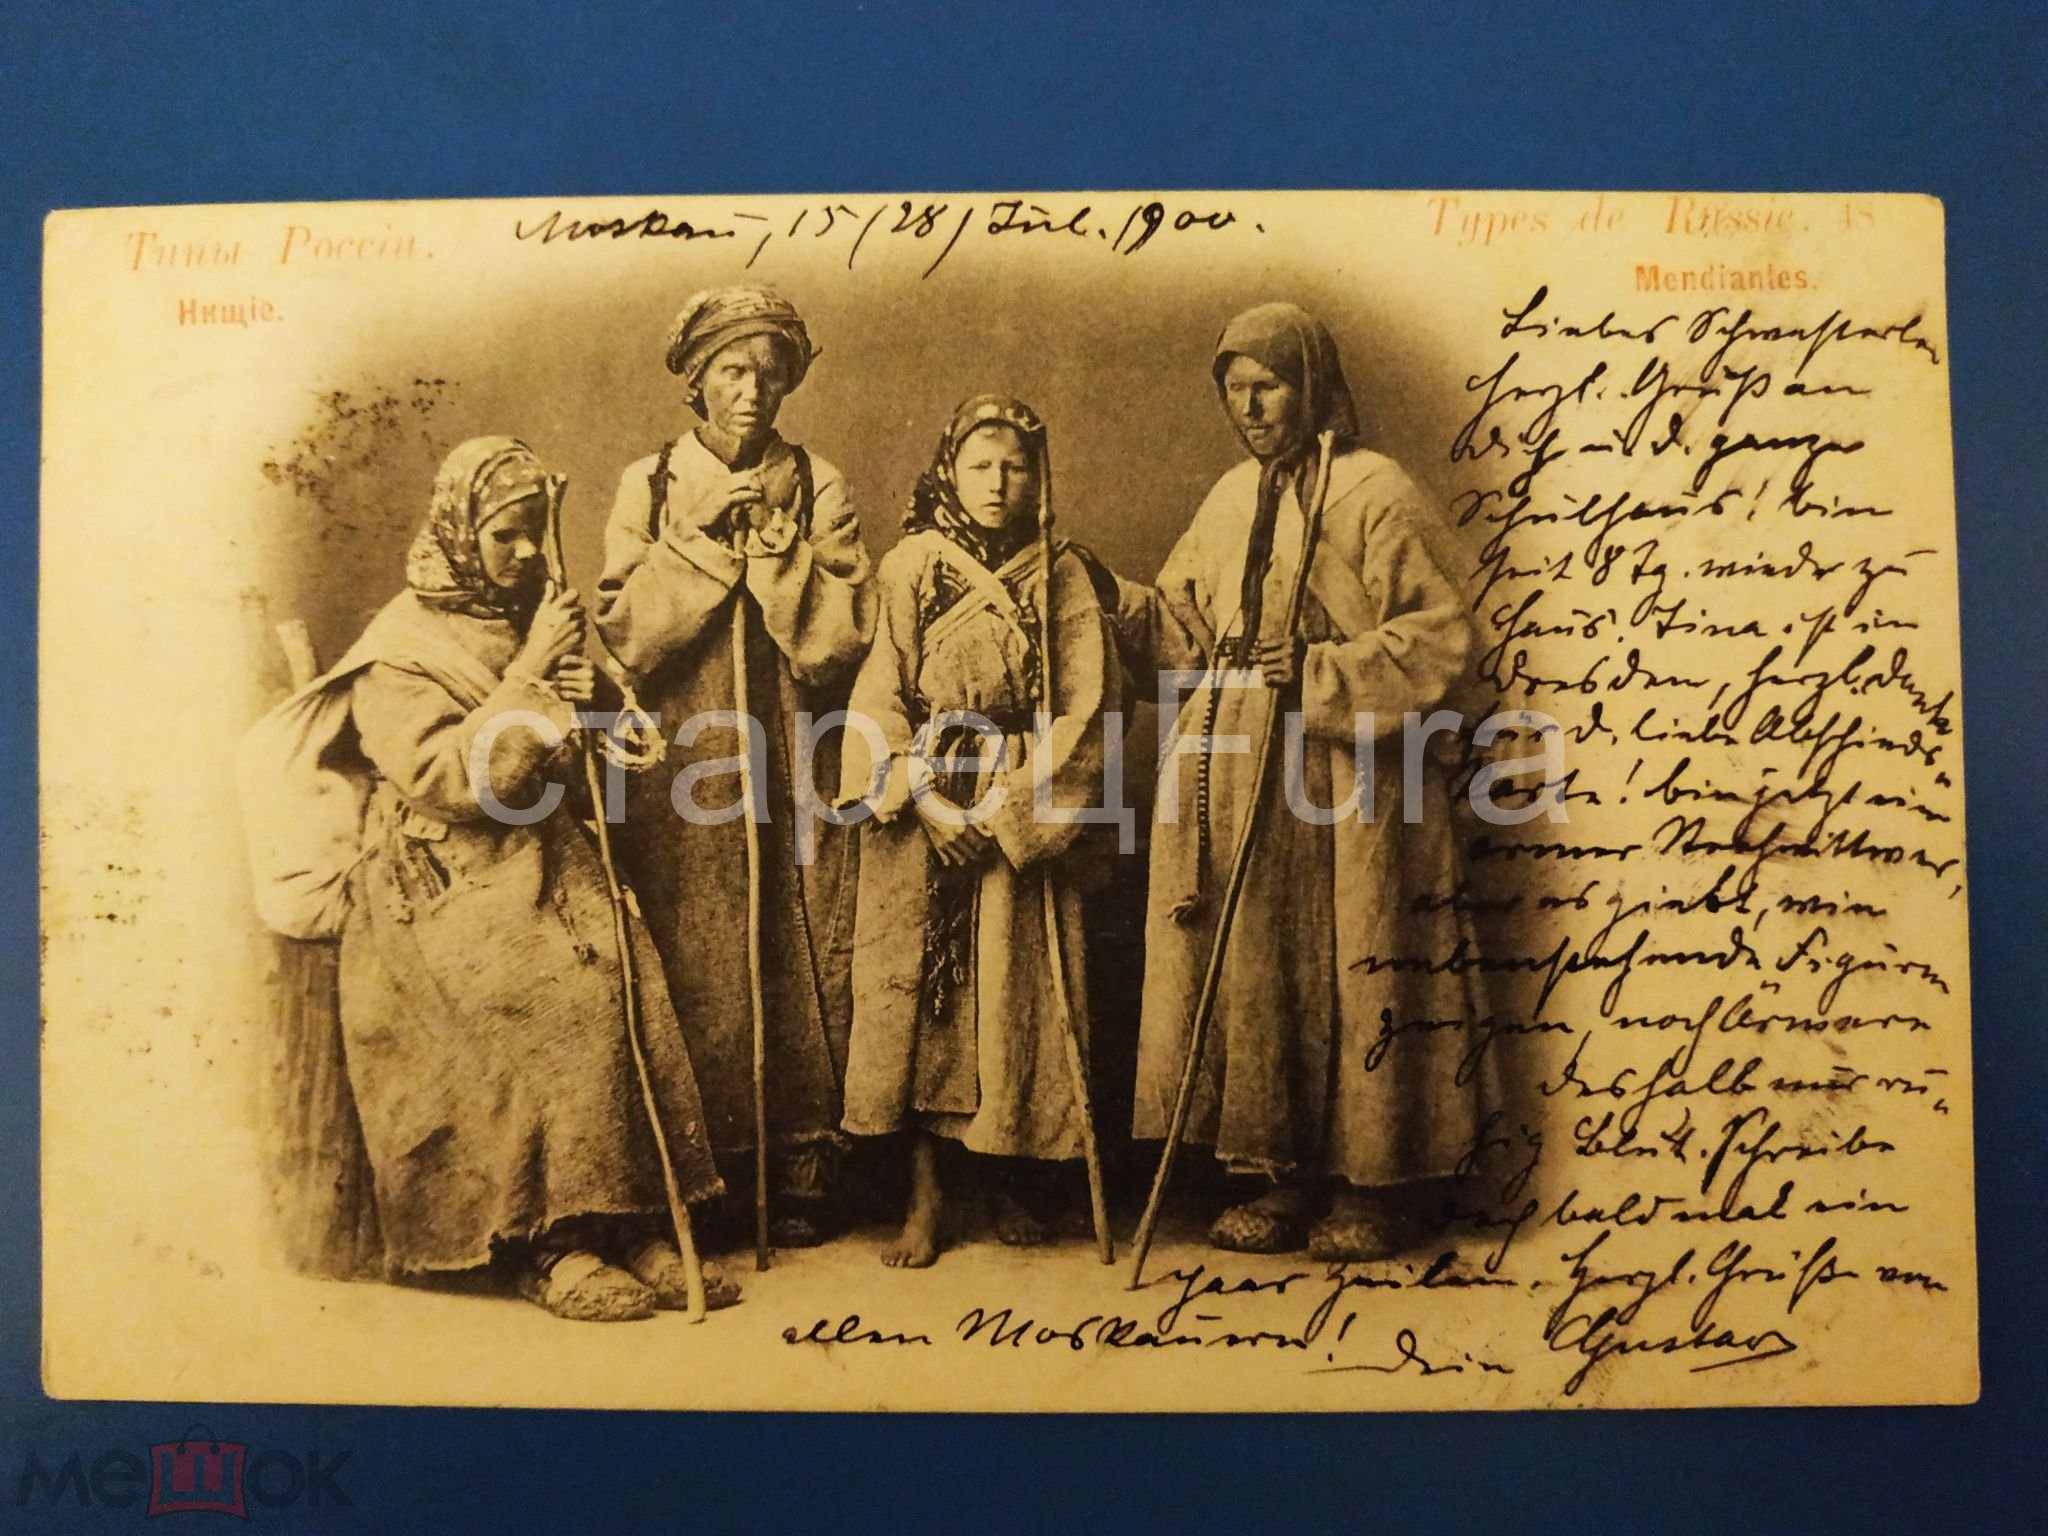 Типы Россіи.
Нищіе.
Moskau, 15/28/ Jul. 1900.
Types de Russie. 48
Mendiantes.
Liebes Schwesterlein
herzl. Gruß an
Dich u. d. ganze
Schulhaus! bin
seit 8 Tg. wieder zu
Haus. Tina ist im
Dresden, herzl. Dank
für d. liebe Abschieds-
karte! bin jetzt ein
armer Strohwittwer,
aber es giebt, wie
nebenstehende Figuren
zeigen, noch Ärmere
deshalb nur ru-
hig Blut. Schreibe
doch bald mal ein
paar Zeilen. Herzl. Grüße von
allen Moskauern!
Dein Gustav
старецFura
мешок